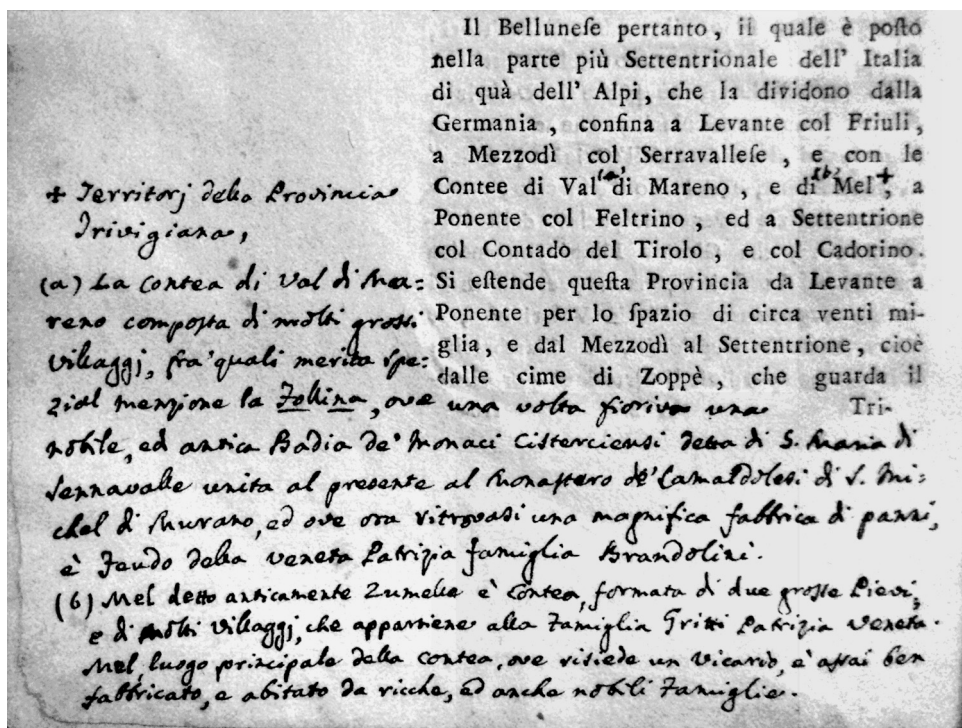 Il Bellunese pertanto, il quale è posto
nella parte più Settentrionale dell' Italia
di quà dell' Alpi, che la dividono dalla
Germania, confina a Levante col Friuli,
a Mezzodì col Serravallese, e con le
Contee di Val (a) di Mareno, e di (b) Mel +, a
Ponente col Feltrino, ed a Settentrione
col Contado del Tirolo, e col Cadorino.
Si estende questa Provincia da Levante a
Ponente per lo spazio di circa venti mi-
glia, e dal Mezzodì al Settentrione, cioè
dalle cime di Zoppè, che guarda il
Tri-
+ Territorj della Provincia
Trivigiana,
(a) La Contea di Val di Ma=
reno composta di molti grossi
Villaggj, fra' quali merita spe=
zial menzione la Follina, ove una volta fioriva una
nobile, ed antica Badia de' Monaci Cisterciensi detta di S. Maria di
Sennavalle unita al presente al Monastero de' Camaldolesi di S. Mi=
chel di Murano, ed ove ora ritrovasi una magnifica fabbrica di panni,
è Feudo della Veneta Patrizia famiglia Brandolini.
(b) Mel detto anticamente Zumelle è Contea, formata di due grosse Pievi,
e di molti Villaggj, che appartiene alla Famiglia Gritti Patrizia Veneta.
Mel, luogo principale della Contea, ove risiede un Vicario, è assai ben
fabbricato, e abitato da ricche, ed anche nobili Famiglie.